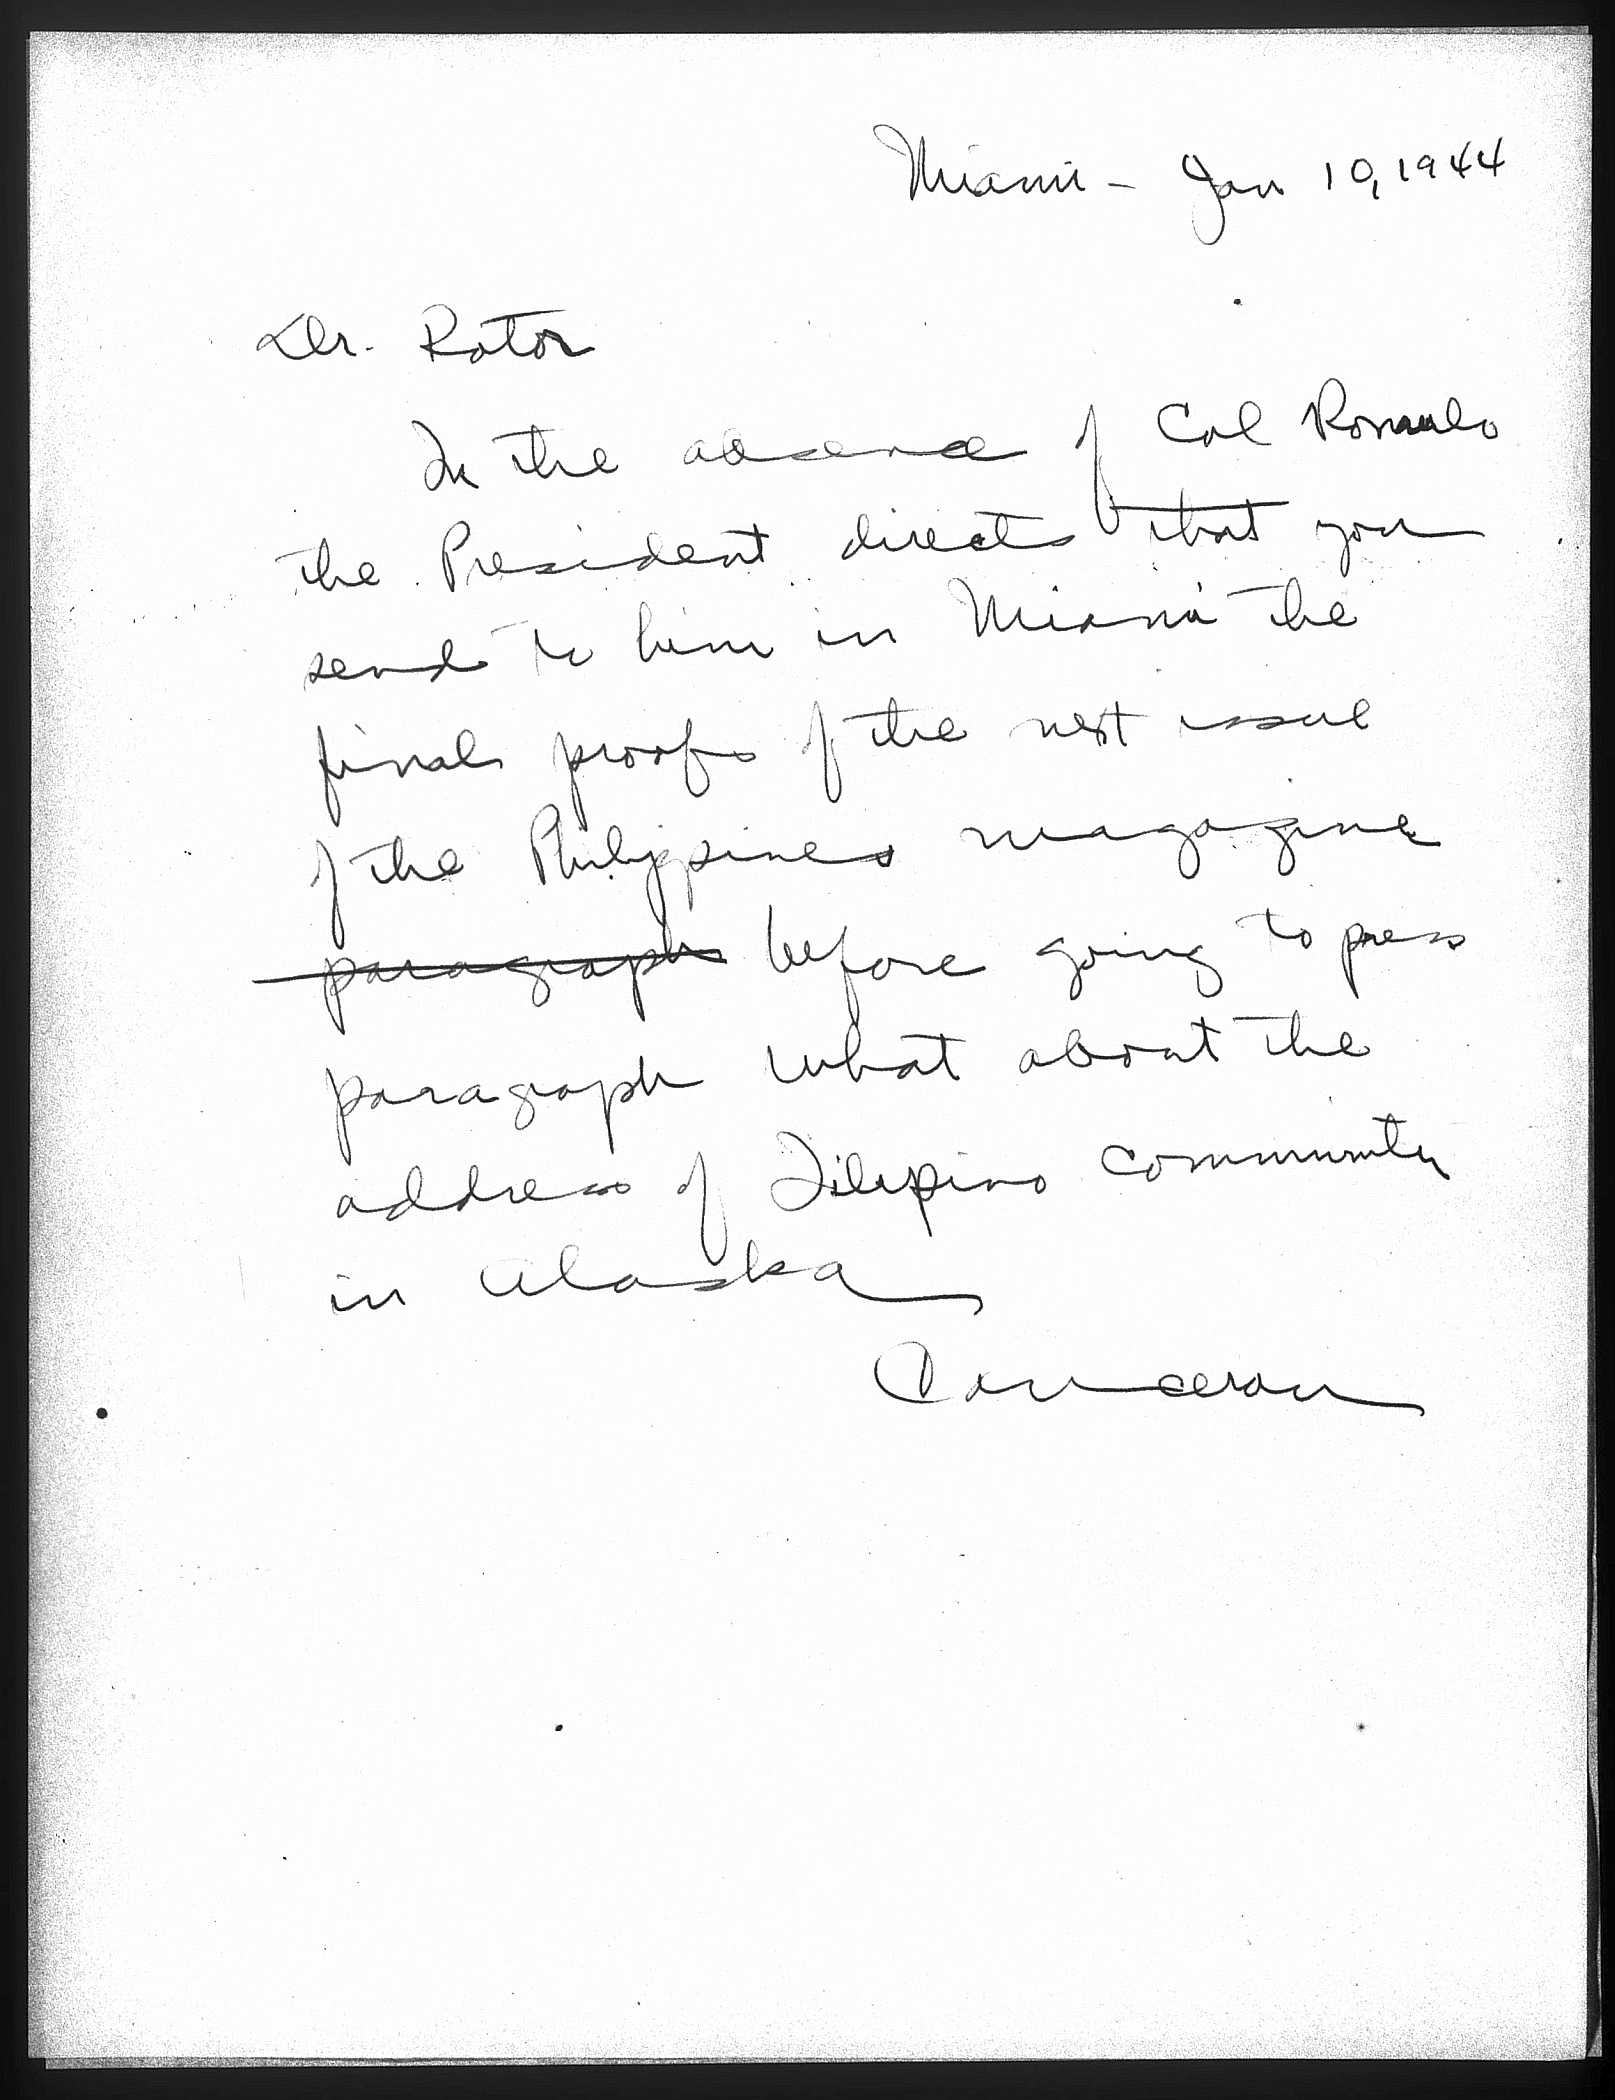 Miami - Jan 10, 1944
Dr. Rotor
In the absence of Col Romulo
the President directs that you
send to him in Miami the
final proofs of the next issue
of the Philippines magazine
paragraph before going to press
paragraph what about the
address of Filipino community
in Alaska